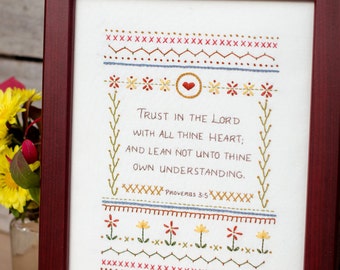 Trust in the Lord
with all thine heart;
and lean not unto thine
own understanding.
Proverbs 3:5